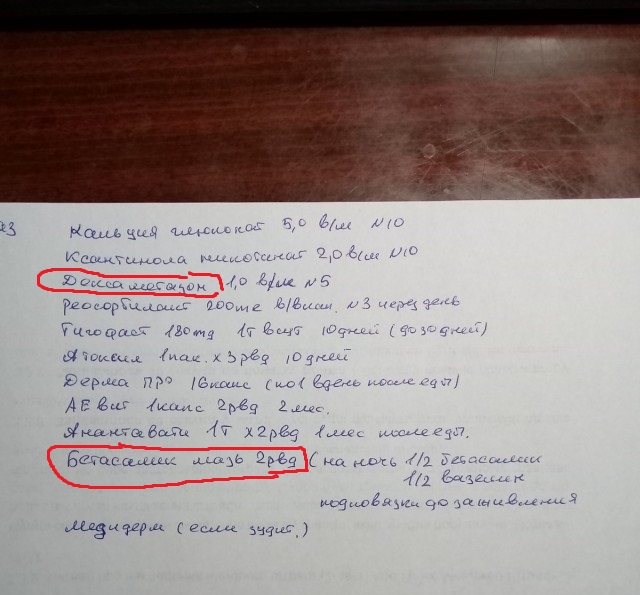 Кальция глюконат 5,0 в/м N10
Ксантинола никотинат 2,0 в/м N10
Дексаметазон 1,0 в/м N5
Реосорбилакт 200 в/в N3 через день
Тигофаст 180 1т в сут 10 дней (до 30 дней)
Атоксил 1 пак. х 3рвд 10 дней
Дерма Про (по 1 в день после еды)
АЕвит 1капс 2рвд 2 мес.
Анантавати 1т х2рвд 1мес после еды.
Бетасалик мазь 2рвд (на ночь 1/2 бетасалик
1/2 вазелин
под повязки до заживления
Медидерм (если зудит.)